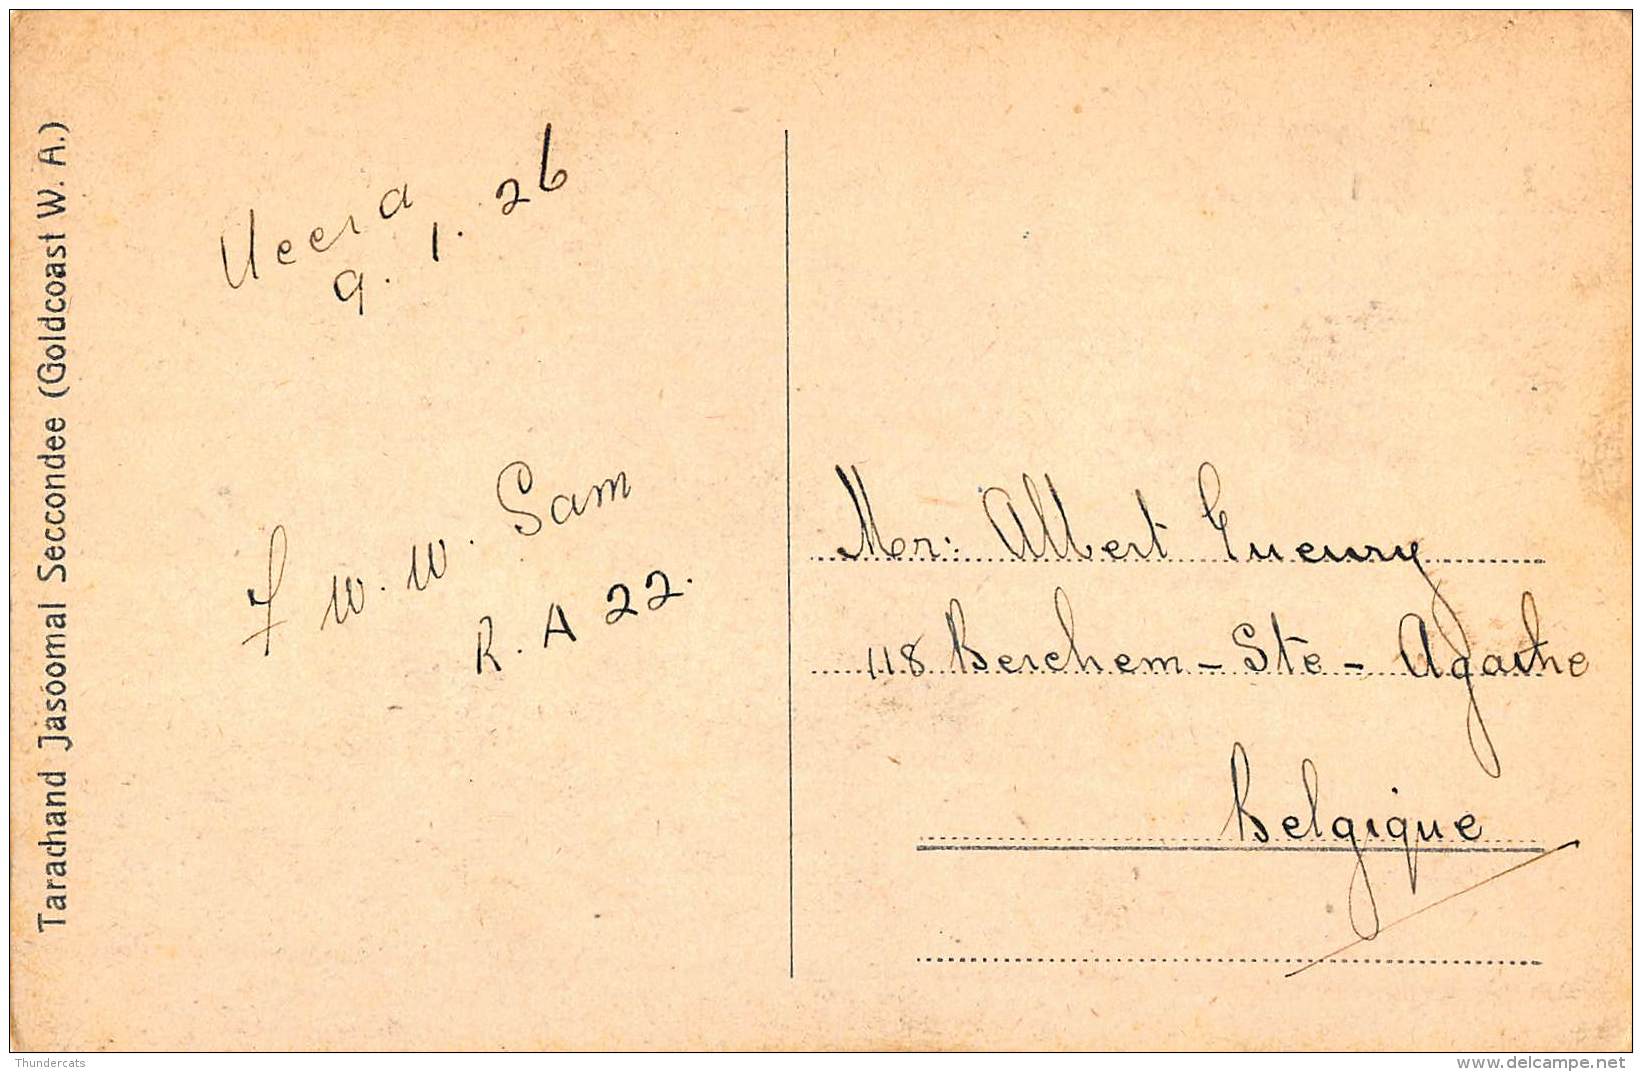 Tarachand Jasoomal Seccondee (Goldcoast W. A.)
9. 1. 26
F W. W. Sam
R. A 22.
Mr: Albert
118 Berchem - Ste - Agathe
Belgique
Thundercats
www.delcampe.net